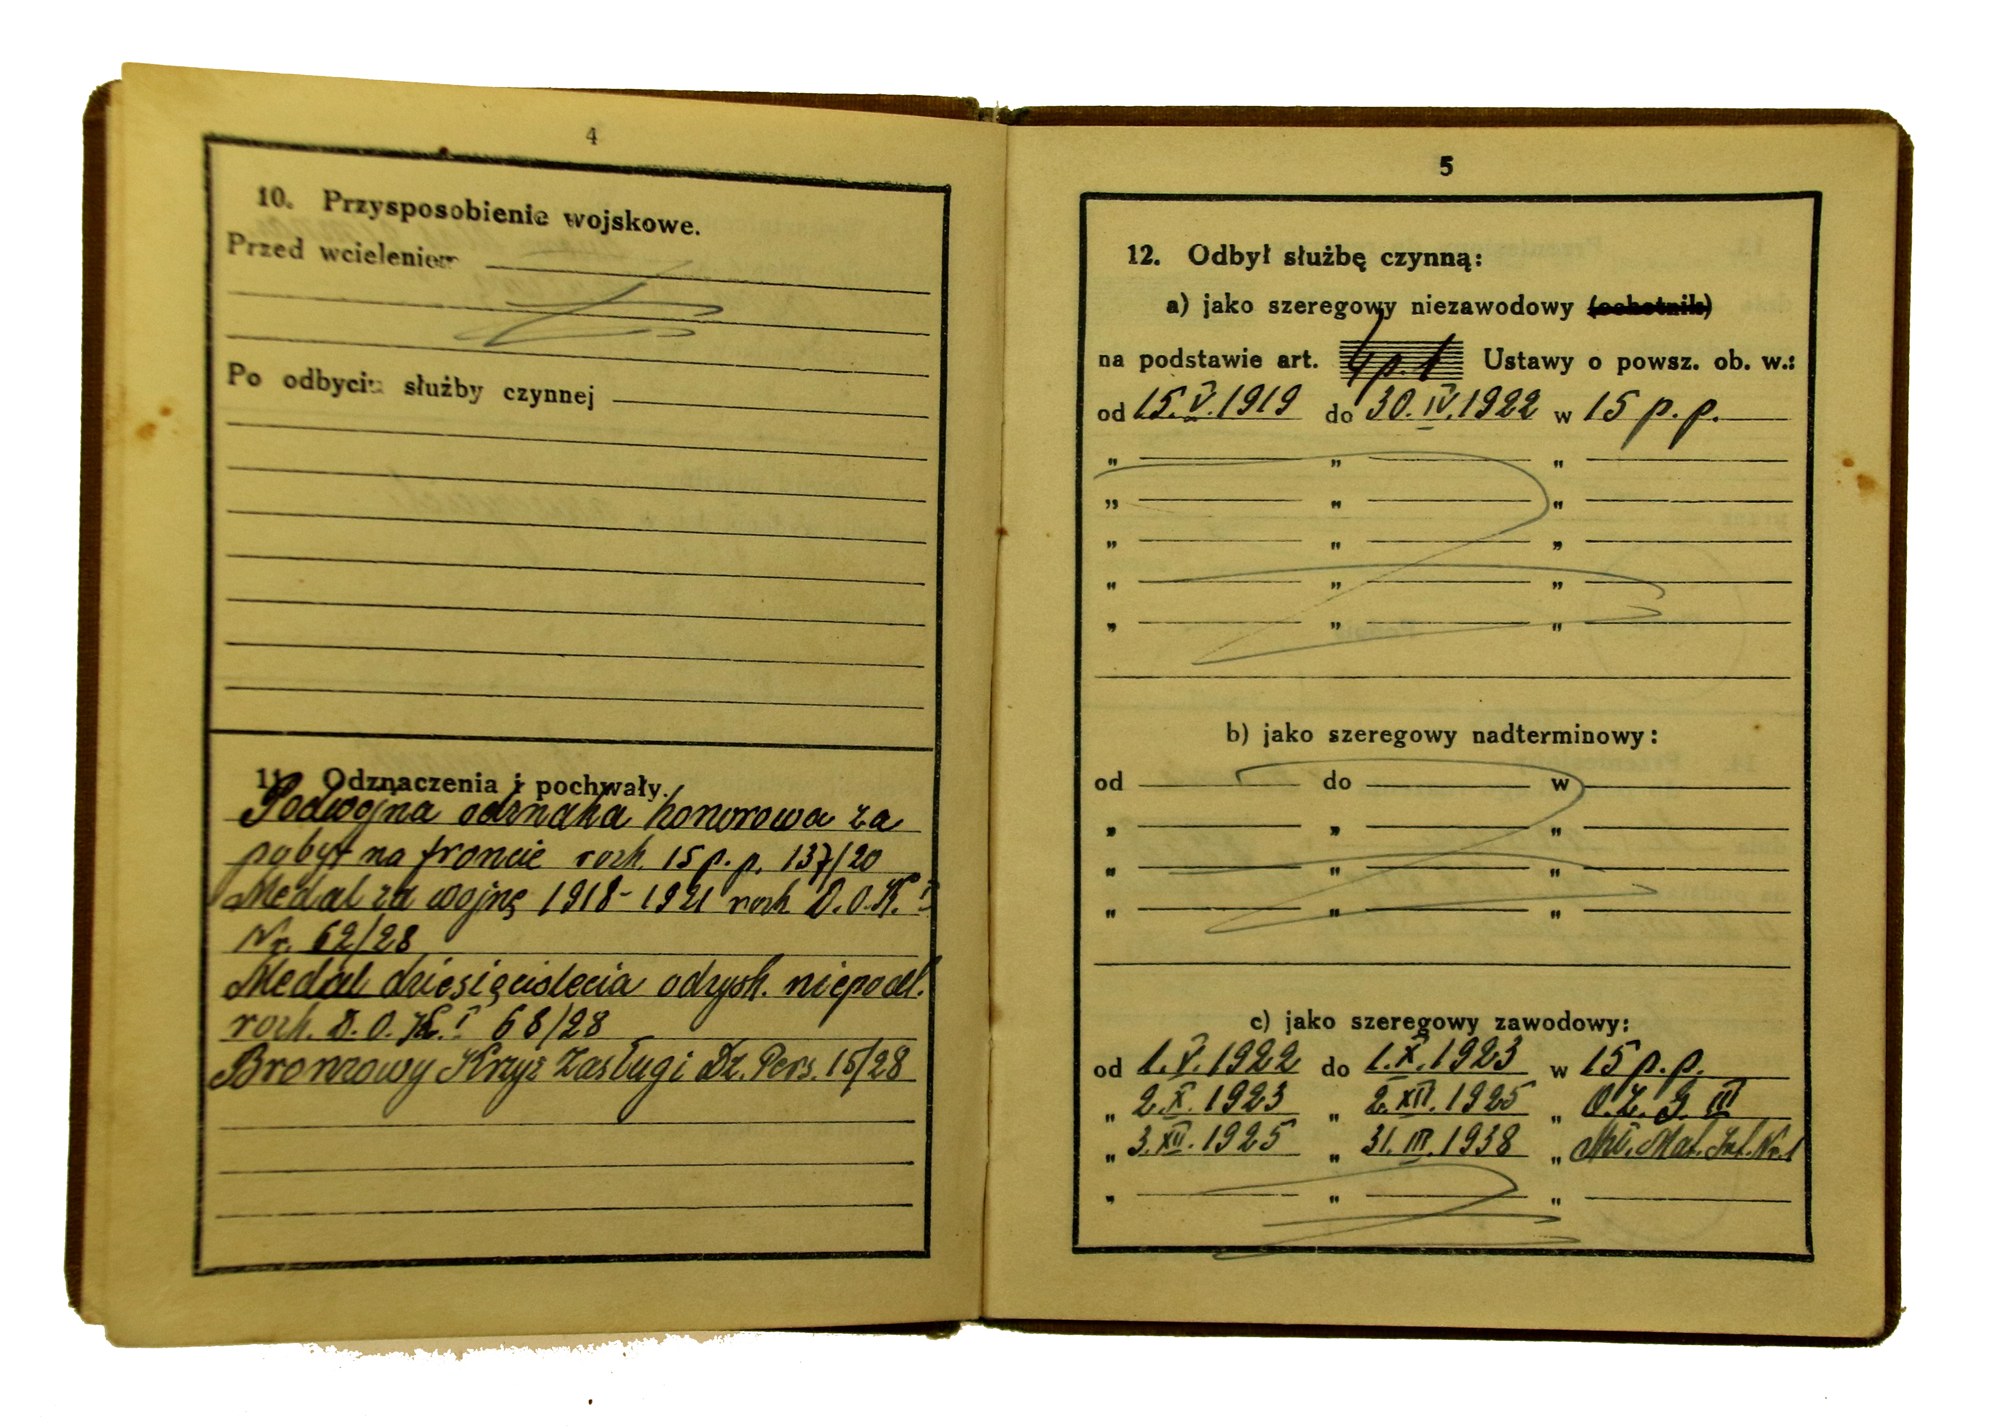 4
10. Przysposobienie wojskowe.
Przed wcieleniem
Po odbyciu służby czynnej
11. Odznaczenia i pochwały.
Podwójna odznaka honorowa za
pobyt na froncie rozk. 15 p. p. 137/20
Medal za wojnę 1918-1921 rozk. D.O.K. I
Nr. 62/28
Medal dziesięciolecia odzysk. niepodl.
rozk. D.O.K. I 68/28
Bronzowy Krzyż Zasługi Dz. Pers. 15/28
5
12. Odbył służbę czynną:
a) jako szeregowy niezawodowy (ochotnik)
na podstawie art. 4 p. 1 Ustawy o powsz. ob. w.:
od 15.V.1919 do 30.IV.1922 w 15 p.p.
„ „ „
„ „ „
„ „ „
„ „ „
„ „ „
b) jako szeregowy nadterminowy:
od do w
„ „ „
„ „ „
„ „ „
c) jako szeregowy zawodowy:
od 1.V.1922 do 1.X.1923 w 15 p.p.
„ 2.X.1923 „ 2.XII.1925 „ O.Z.G. III
„ 3.XII.1925 „ 31.III.1938 „ Mat. Int. Nr.1
„ „ „